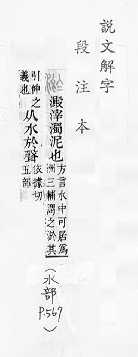 說文解字
段注本
淤 澱滓濁泥也 方言水中可居爲
洲三輔謂之淤其
引伸之
義也 从水於聲 依據切
五部
(水部
P.567)